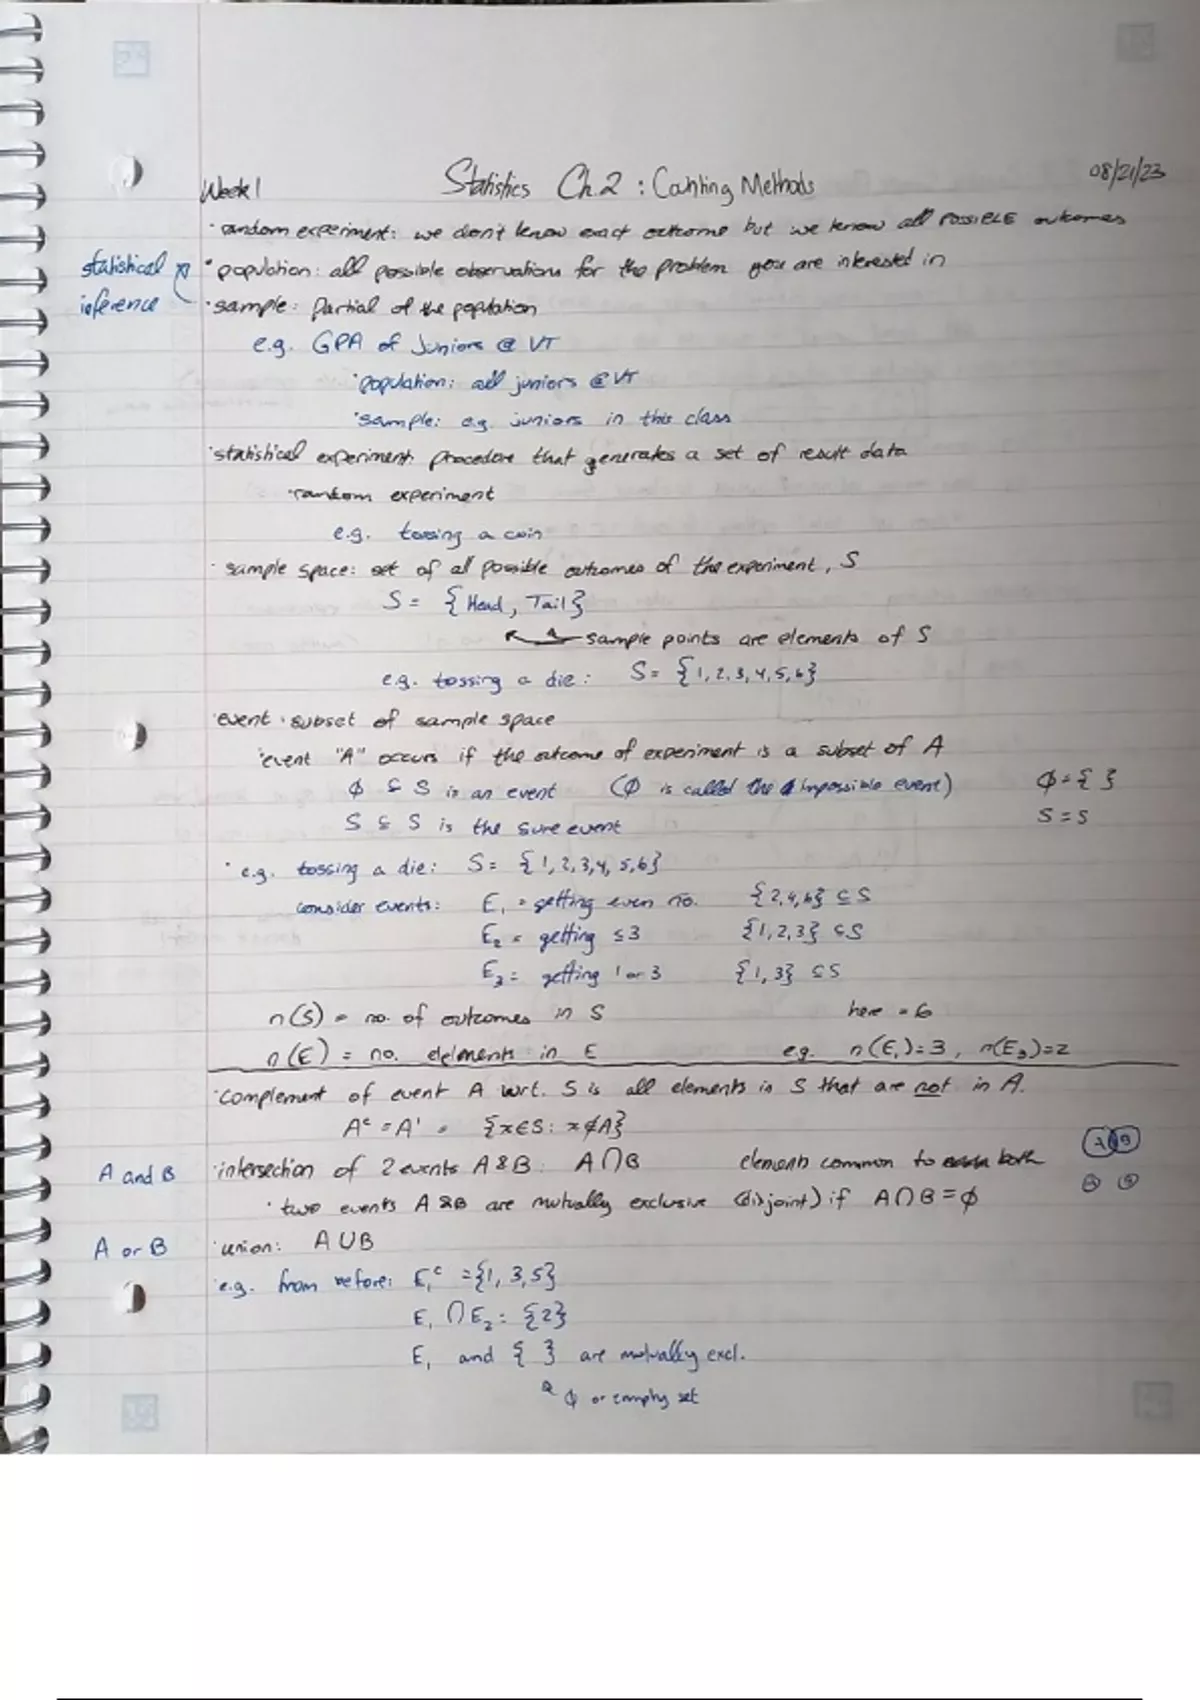 Week 1
Statistics Ch.2 : Counting Methods
08/21/23
· random experiment: we don't know exact outcome but we know all POSSIBLE outcomes
statistical inference
· population: all possible observations for the problem you are interested in
· sample: Partial of the population
e.g. GPA of Juniors @ VT
· population: all juniors @ VT
· sample: e.g. juniors in this class
· statistical experiment: procedure that generates a set of result data
· random experiment
e.g. tossing a coin
· sample space: set of all possible outcomes of the experiment, S
S = { Head, Tail }
sample points are elements of S
e.g. tossing a die: S = {1,2,3,4,5,6}
· event: subset of sample space
· event "A" occurs if the outcome of experiment is a subset of A
∅ ⊆ S is an event (∅ is called the impossible event) ∅ = { }
S ⊆ S is the sure event S = S
· e.g. tossing a die: S = {1,2,3,4,5,6}
consider events: E₁ = getting even no. {2,4,6} ⊆ S
E₂ = getting ≤3 {1,2,3} ⊆ S
E₃ = getting 1 or 3 {1,3} ⊆ S
n(S) = no. of outcomes in S here = 6
n(E) = no. elements in E e.g. n(E₁)=3, n(E₃)=2
· complement of event A wrt. S is all elements in S that are not in A.
Aᶜ = A' = {x∈S: x∉A}
A and B · intersection of 2 events A & B: A∩B elements common to both A B
· two events A & B are mutually exclusive (disjoint) if A∩B=∅
A or B · union: A∪B
· e.g. from before: E₁ᶜ = {1,3,5}
E₁ ∩ E₂ = {2}
E₁ and { } are mutually excl.
∅ or empty set